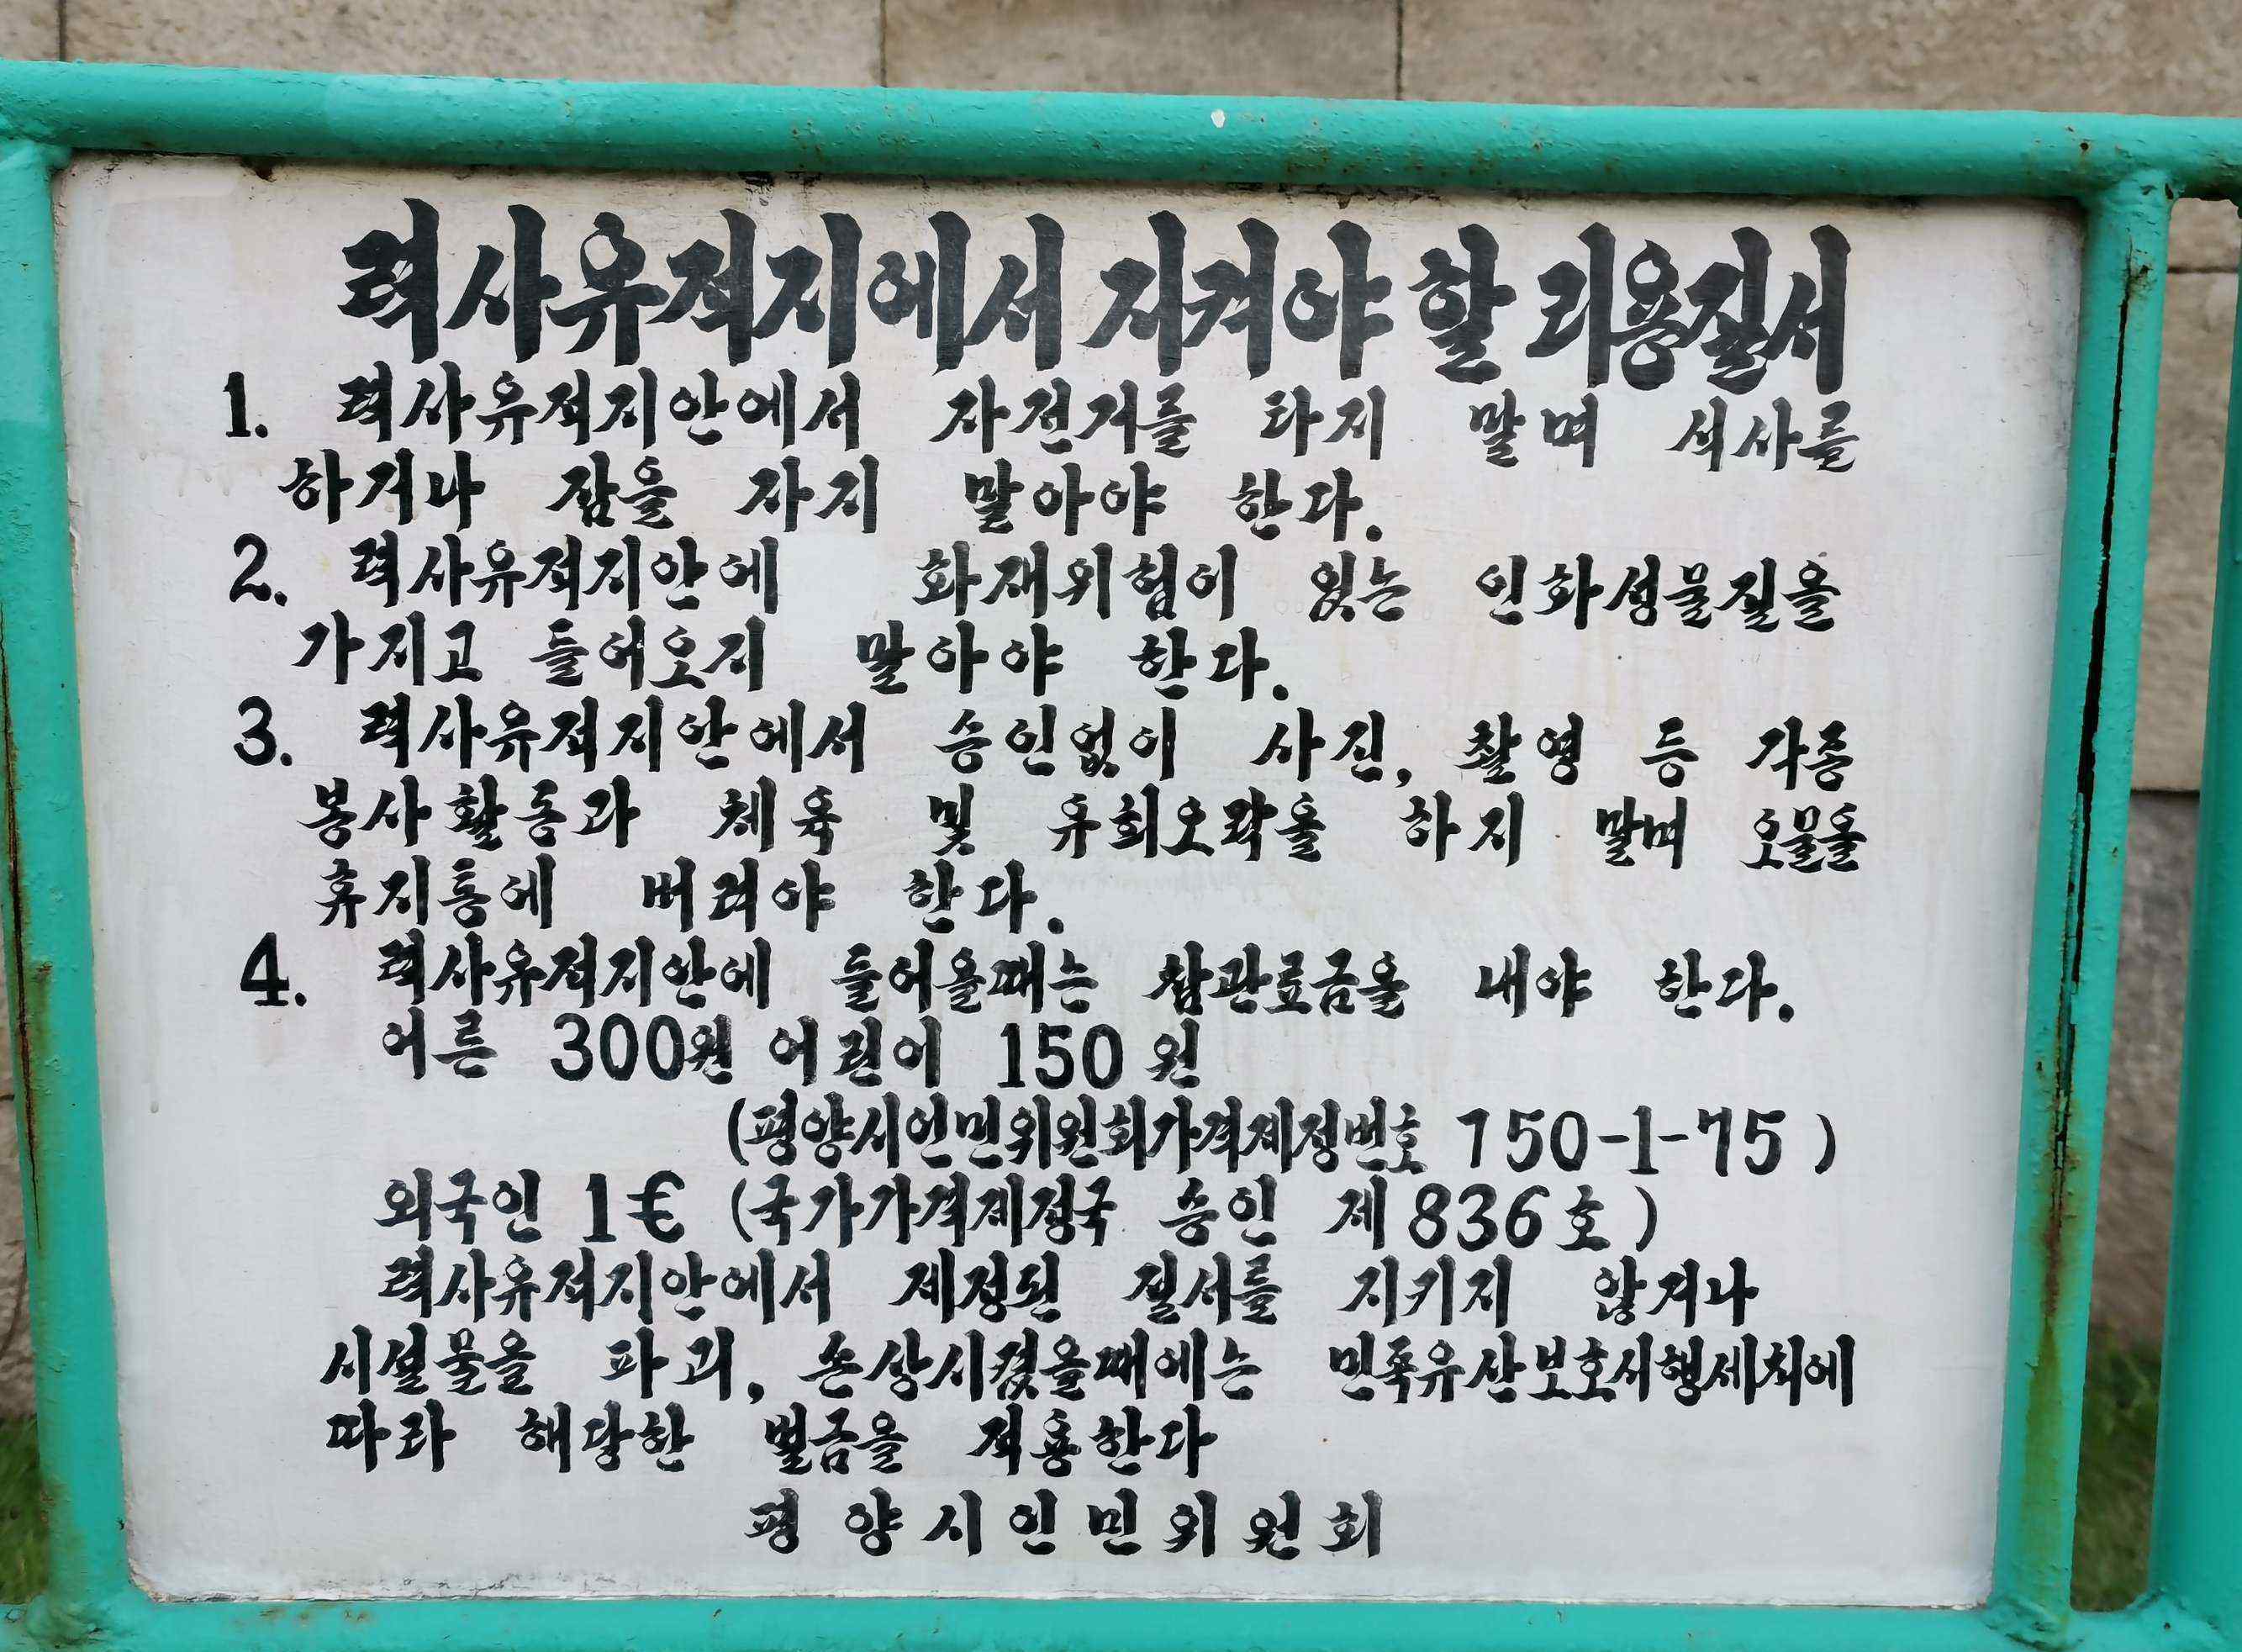 력사유적지에서 지켜야 할 리용질서
1. 력사유적지안에서 자전거를 타지 말며 식사를
하거나 잠을 자지 말아야 한다.
2. 력사유적지안에 화재위험이 있는 인화성물질을
가지고 들어오지 말아야 한다.
3. 력사유적지안에서 승인없이 사진, 촬영 등 각종
봉사활동과 체육 및 유희오락을 하지 말며 오물을
휴지통에 버려야 한다.
4. 력사유적지안에 들어올때는 참관료금을 내야 한다.
어른 300원 어린이 150원
(평양시인민위원회가격제정번호 750-1-75)
외국인 1€ (국가가격제정국 승인 제836호)
력사유적지안에서 제정된 질서를 지키지 않거나
시설물을 파괴, 손상시켰을때에는 민족유산보호시행세칙에
따라 해당한 벌금을 적용한다
평양시인민위원회